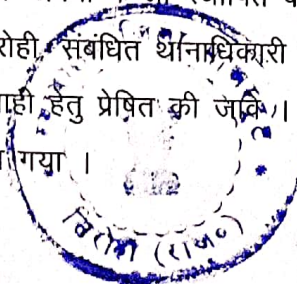 रोही संबंधित थानाधिकारी
ाही हेतु प्रेषित की जावे ।
गया ।
सिरोही (राज०)